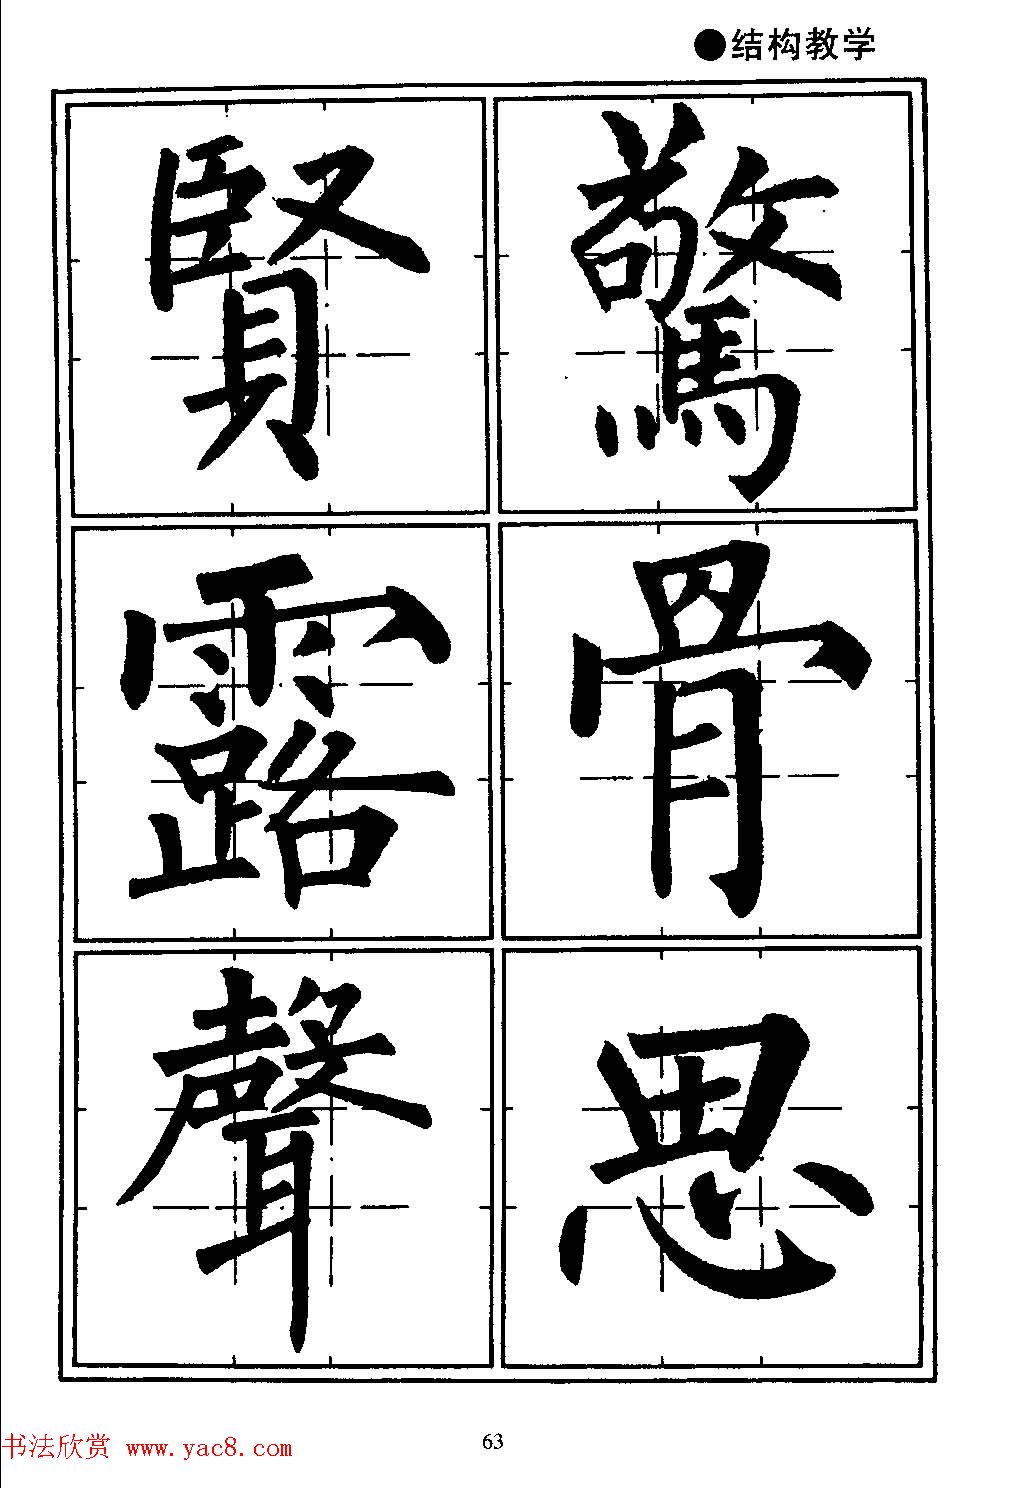 ●结构教学
驚
骨
思
賢
露
聲
书法欣赏 www.yac8.com
63